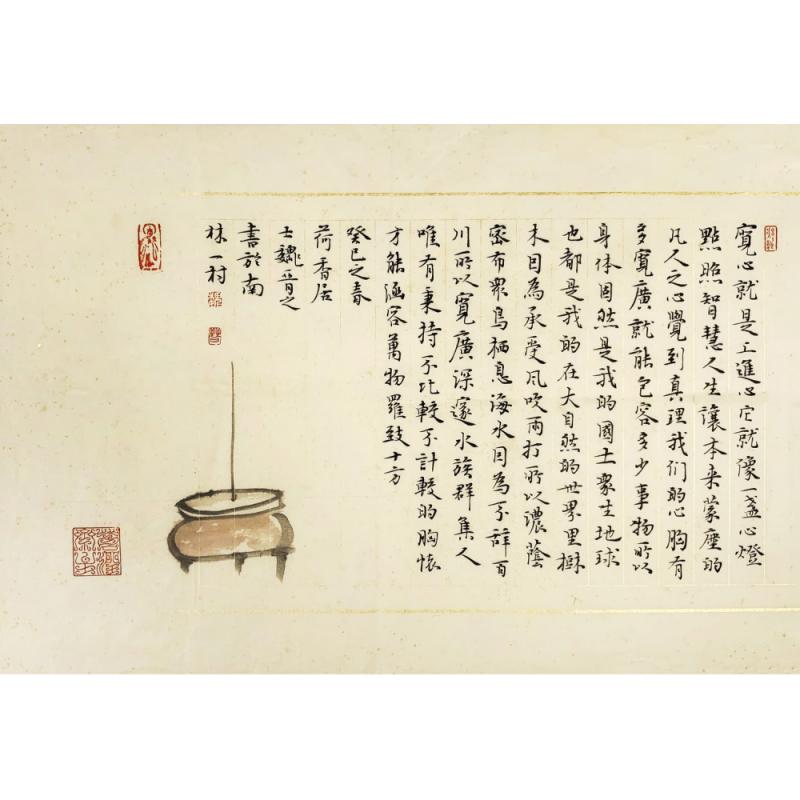 寬心就是上進心它就像一盞心燈
點照智慧人生讓本来蒙塵的
凡人之心覺到真理我们的心胸有
多寬廣就能包容多少事物所以
身体固然是我的國土衆生地球
也都是我的在大自然的世界里樹
木因為承受风吹雨打所以濃蔭
密布衆鳥栖息海水因為不辞百
川所以寬廣深邃水族群集人
唯有秉持不比較不計較的胸怀
方能涵容萬物羅致十方
癸巳之春
荷香居
士魏晋之
書於南
林一村